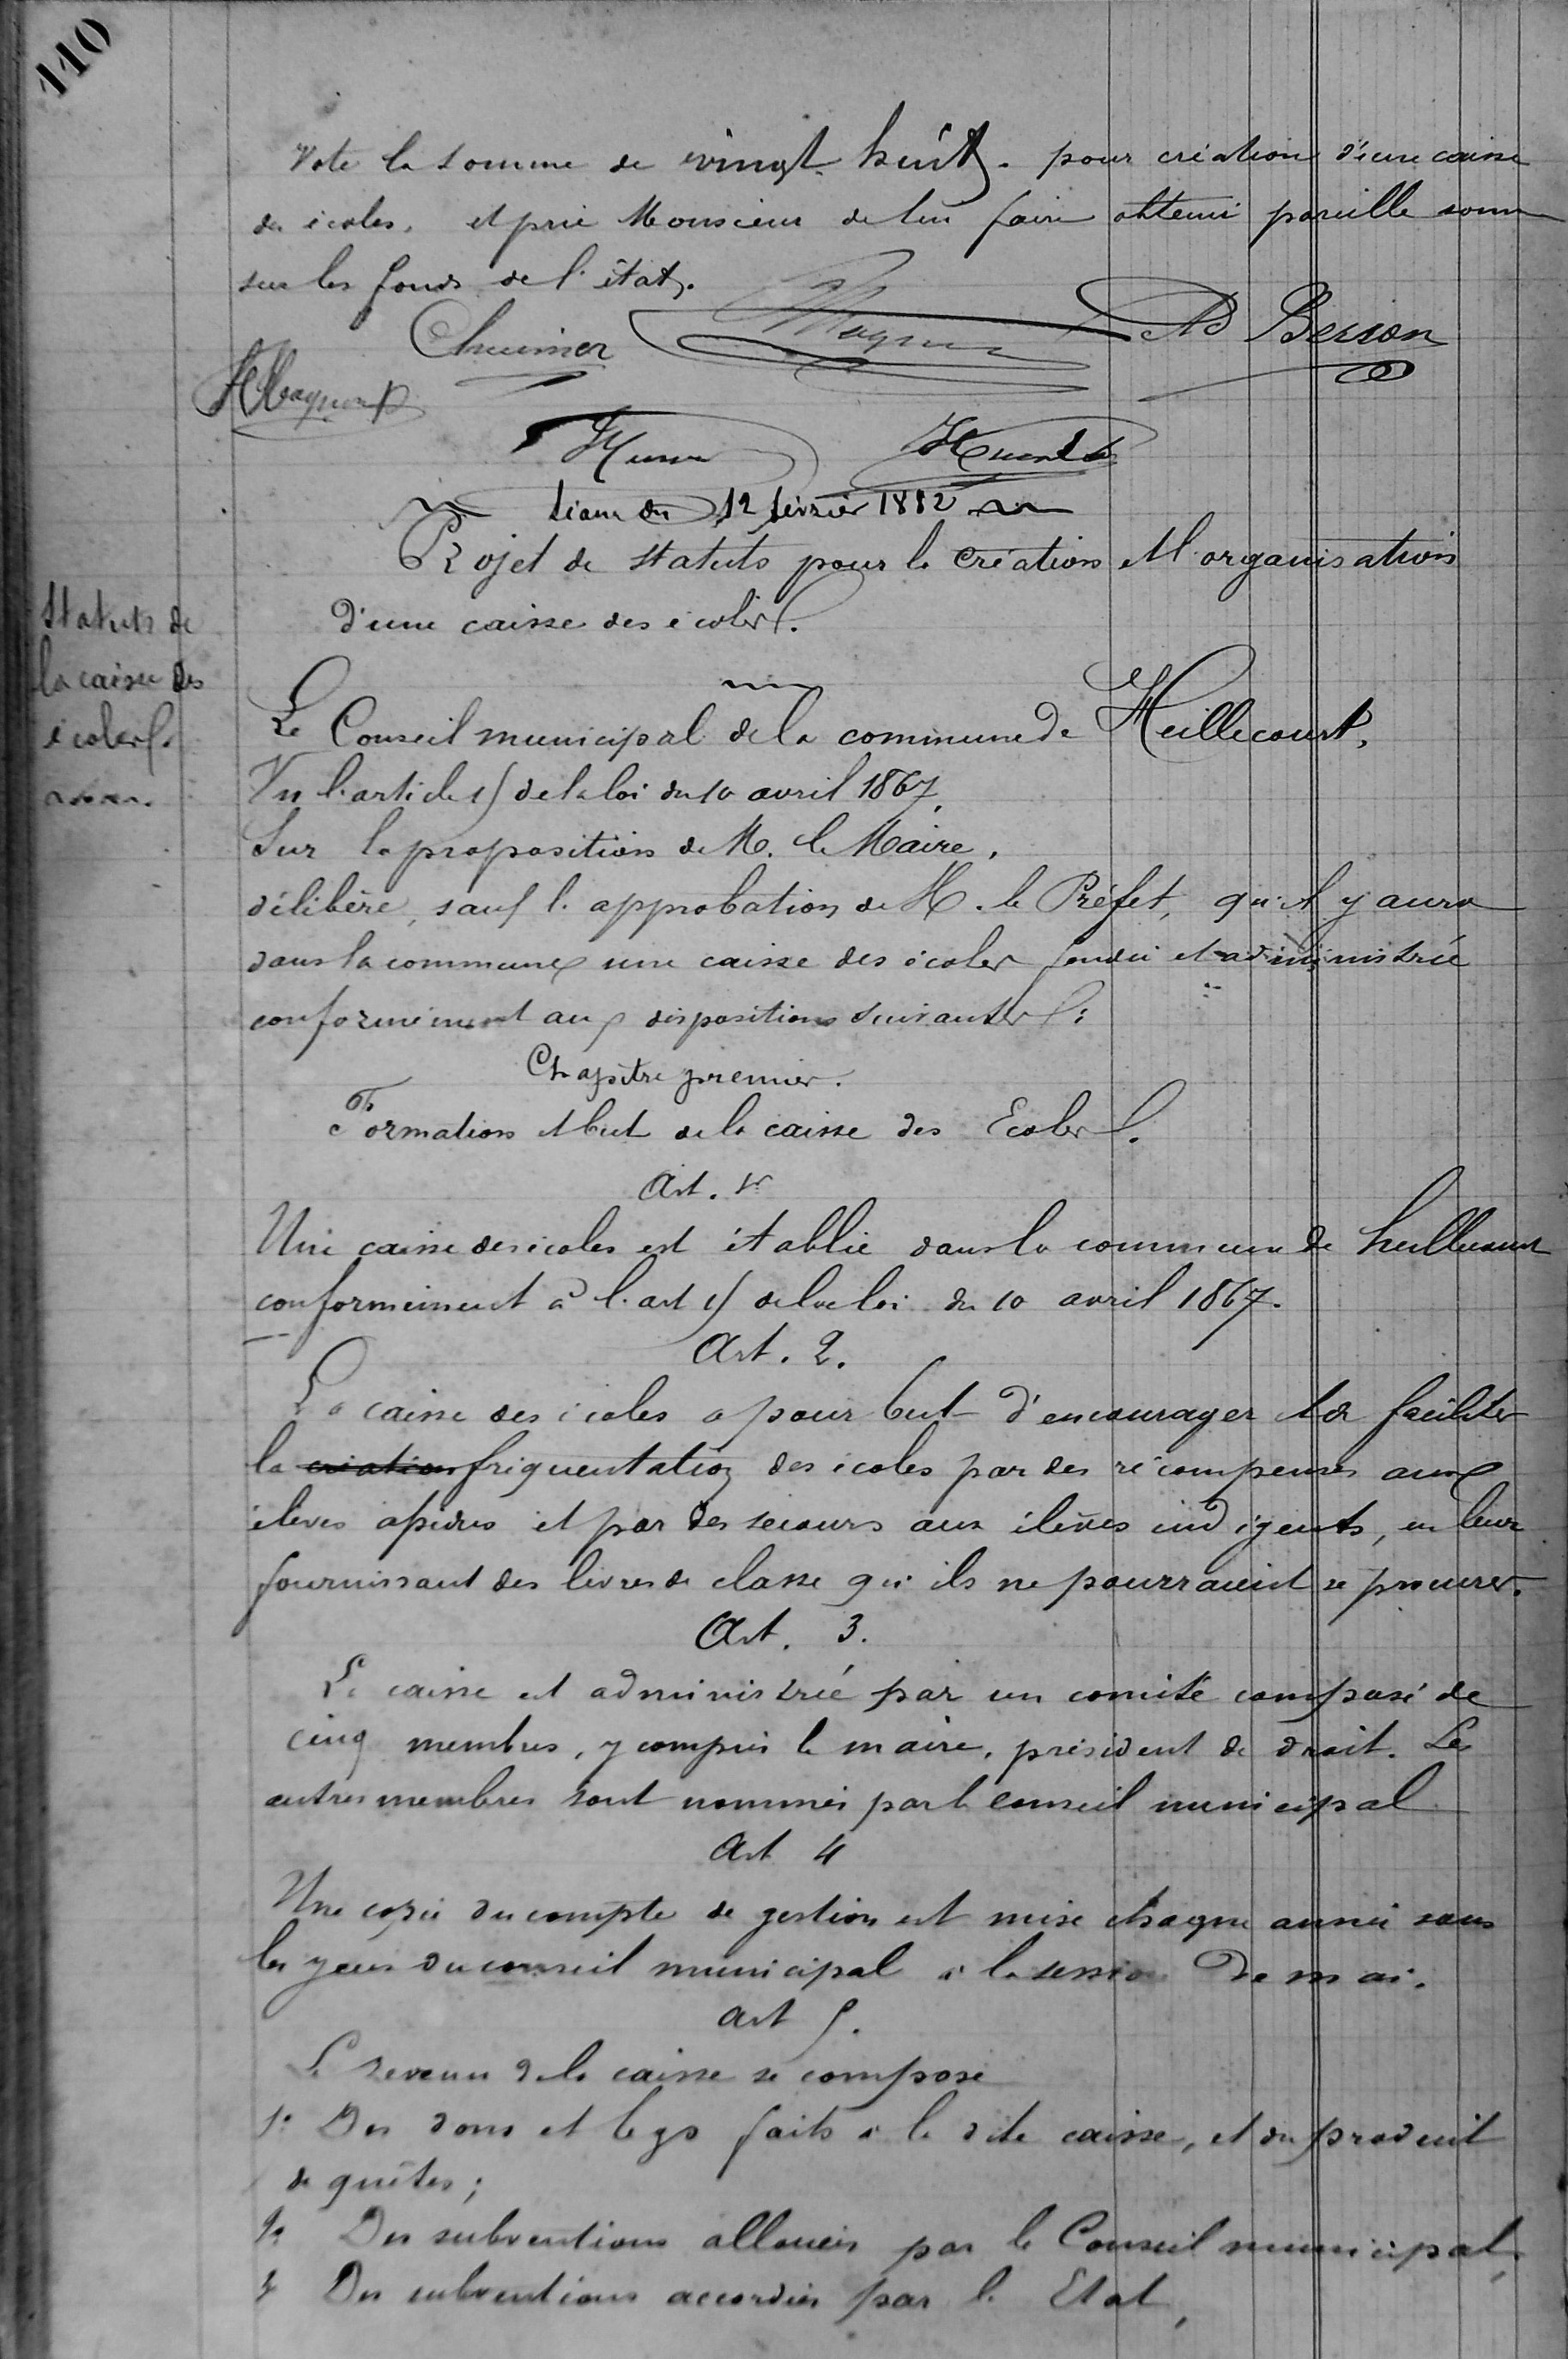 110
Vote la somme de vingt huit. pour création d'une caisse
des écoles, et prie Monsieur de lui faire obtenir pareille somme
sur les fonds de l'état.
Chuiner Magner Ad Besson
H Magnard
Statuts de
la caisse des
écoles.
Séance du 12 février 1882
Projet de statuts pour la création et l'organisation
d'une caisse des écoles.
Le Conseil municipal de la commune de Heillecourt,
Vu l'article 15 de la loi du 10 avril 1867,
Sur la proposition de M. le Maire,
délibère, sauf l'approbation de M. le Préfet, qu'il y aura
dans la commune une caisse des écoles fondée et administrée
conformément aux dispositions suivantes :
Chapitre premier.
Formation et but de la caisse des Ecoles.
Art. 1er
Une caisse des écoles est établie dans la commune de heillecourt
conformément à l'art 15 de la loi du 10 avril 1867.
Art. 2.
La caisse des écoles a pour but d'encourager et de faciliter
la création fréquentation des écoles par des récompenses aux
élèves assidus et par des secours aux élèves indigents, en leur
fournissant des livres de classe qu'ils ne pourraient se procurer.
Art. 3.
La caisse est administrée par un comité composé de
cinq membres, y compris le maire, président de droit. Les
autres membres sont nommés par le conseil municipal
Art 4
Une copie du compte de gestion est mise chaque année sous
les yeux du conseil municipal à la session de mai.
art 5.
Le revenu de la caisse se compose
1° Des dons et legs faits à la dite caisse, et du produit
de quêtes ;
2° Des subventions allouées par le Conseil municipal,
3° Des subventions accordées par l'Etat,